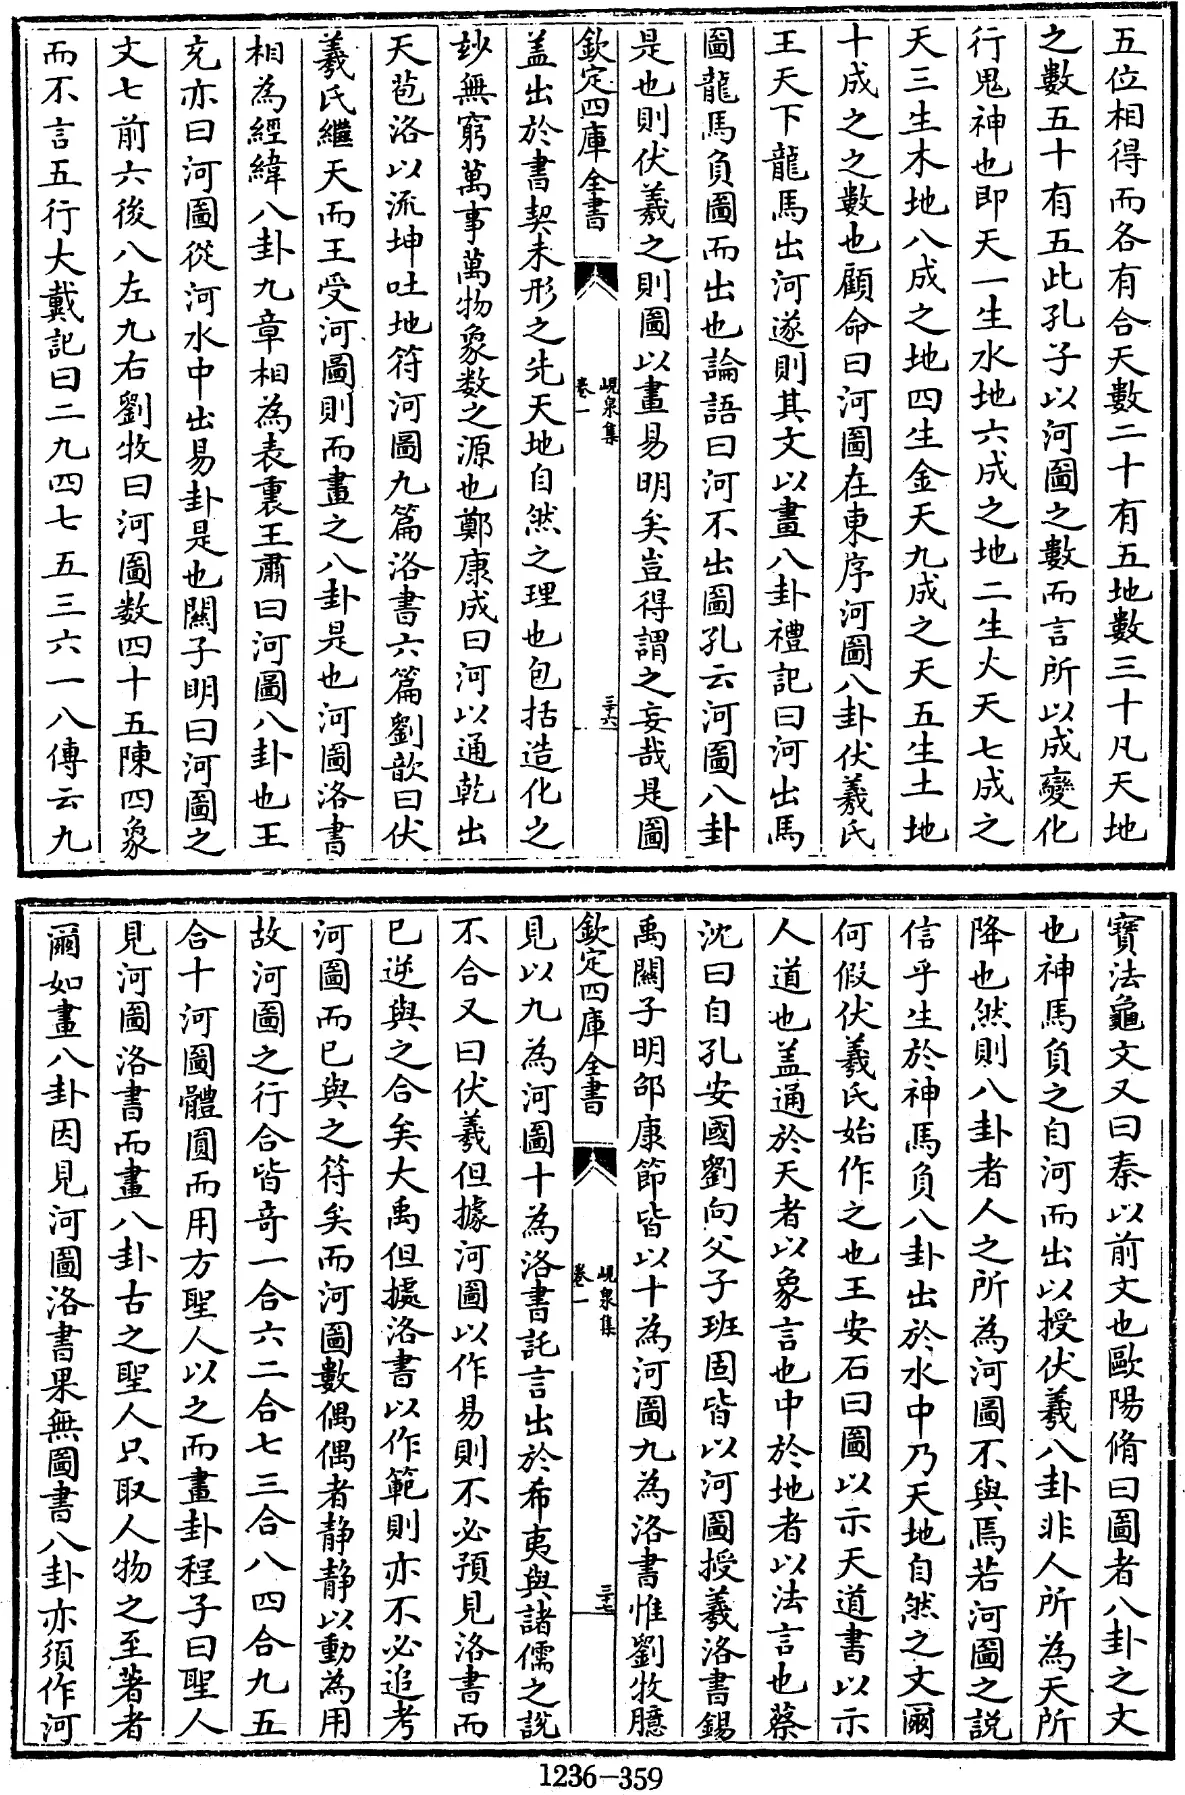 五位相得而各有合天數二十有五地數三十凡天地
之數五十有五此孔子以河圖之數而言所以成變化
行鬼神也即天一生水地六成之地二生火天七成之
天三生木地八成之地四生金天九成之天五生土地
十成之之數也顧命曰河圖在東序河圖八卦伏羲氏
王天下龍馬出河遂則其文以畫八卦禮記曰河出馬
圖龍馬負圖而出也論語曰河不出圖孔云河圖八卦
是也則伏羲之則圖以畫易明矣豈得謂之妄哉是圖
欽定四庫全書
峴泉集
卷一
三十六
盖出於書契未形之先天地自然之理也包括造化之
妙無窮萬事萬物象数之源也鄭康成曰河以通乾出
天苞洛以流坤吐地符河圖九篇洛書六篇劉歆曰伏
羲氏繼天而王受河圖則而畫之八卦是也河圖洛書
相為經緯八卦九章相為表裏王肅曰河圖八卦也王
充亦曰河圖從河水中出易卦是也關子明曰河圖之
文七前六後八左九右劉牧曰河圖数四十五陳四象
而不言五行大戴記曰二九四七五三六一八傳云九
寶法龜文又曰秦以前文也歐陽脩曰圖者八卦之文
也神馬負之自河而出以授伏羲八卦非人所為天所
降也然則八卦者人之所為河圖不與焉若河圖之説
信乎生於神馬負八卦出於水中乃天地自然之文爾
何假伏羲氏始作之也王安石曰圖以示天道書以示
人道也盖通於天者以象言也中於地者以法言也蔡
沈曰自孔安國劉向父子班固皆以河圖授羲洛書錫
禹關子明邵康節皆以十為河圖九為洛書惟劉牧臆
欽定四庫全書
峴泉集
卷一
三十七
見以九為河圖十為洛書託言出於希夷與諸儒之說
不合又曰伏羲但據河圖以作易則不必預見洛書而
已逆與之合矣大禹但據洛書以作範則亦不必追考
河圖而已與之符矣而河圖數偶偶者静静以動為用
故河圖之行合皆奇一合六二合七三合八四合九五
合十河圖體圓而用方聖人以之而畫卦程子曰聖人
見河圖洛書而畫八卦古之聖人只取人物之至著者
爾如畫八卦因見河圖洛書果無圖書八卦亦須作河
1236-359